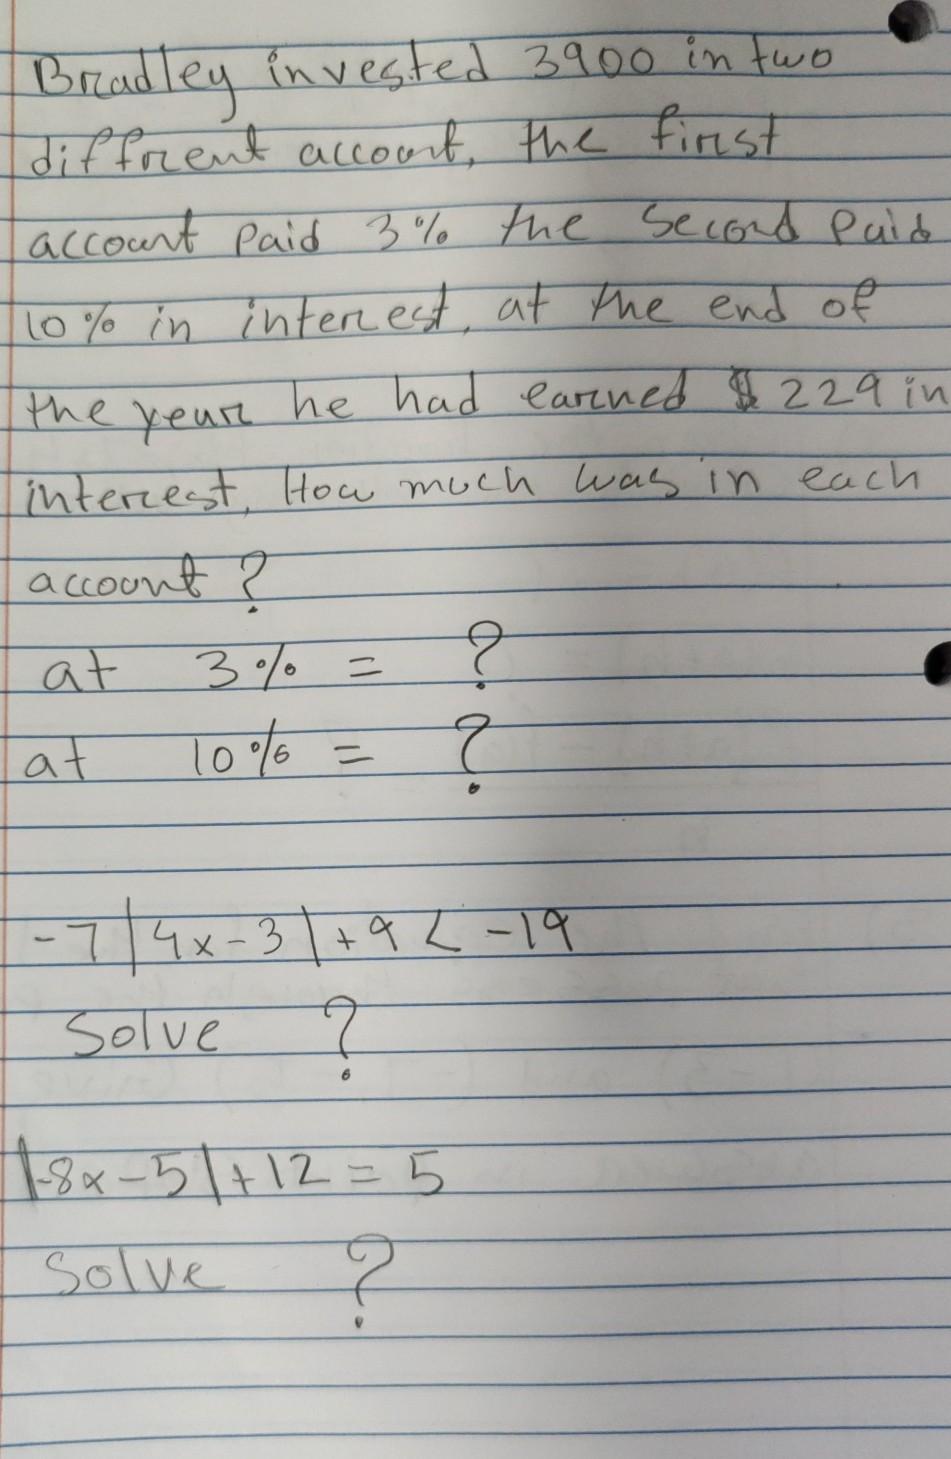 Bradley invested 3900 in two
diffrent account, the first
account paid 3% the second paid
10% in interest, at the end of
the year he had earned $229 in
interest, How much was in each
account?
at 3% = ?
at 10% = ?
-7|4x-3|+9 < -19
Solve ?
|-8x-5|+12=5
Solve ?